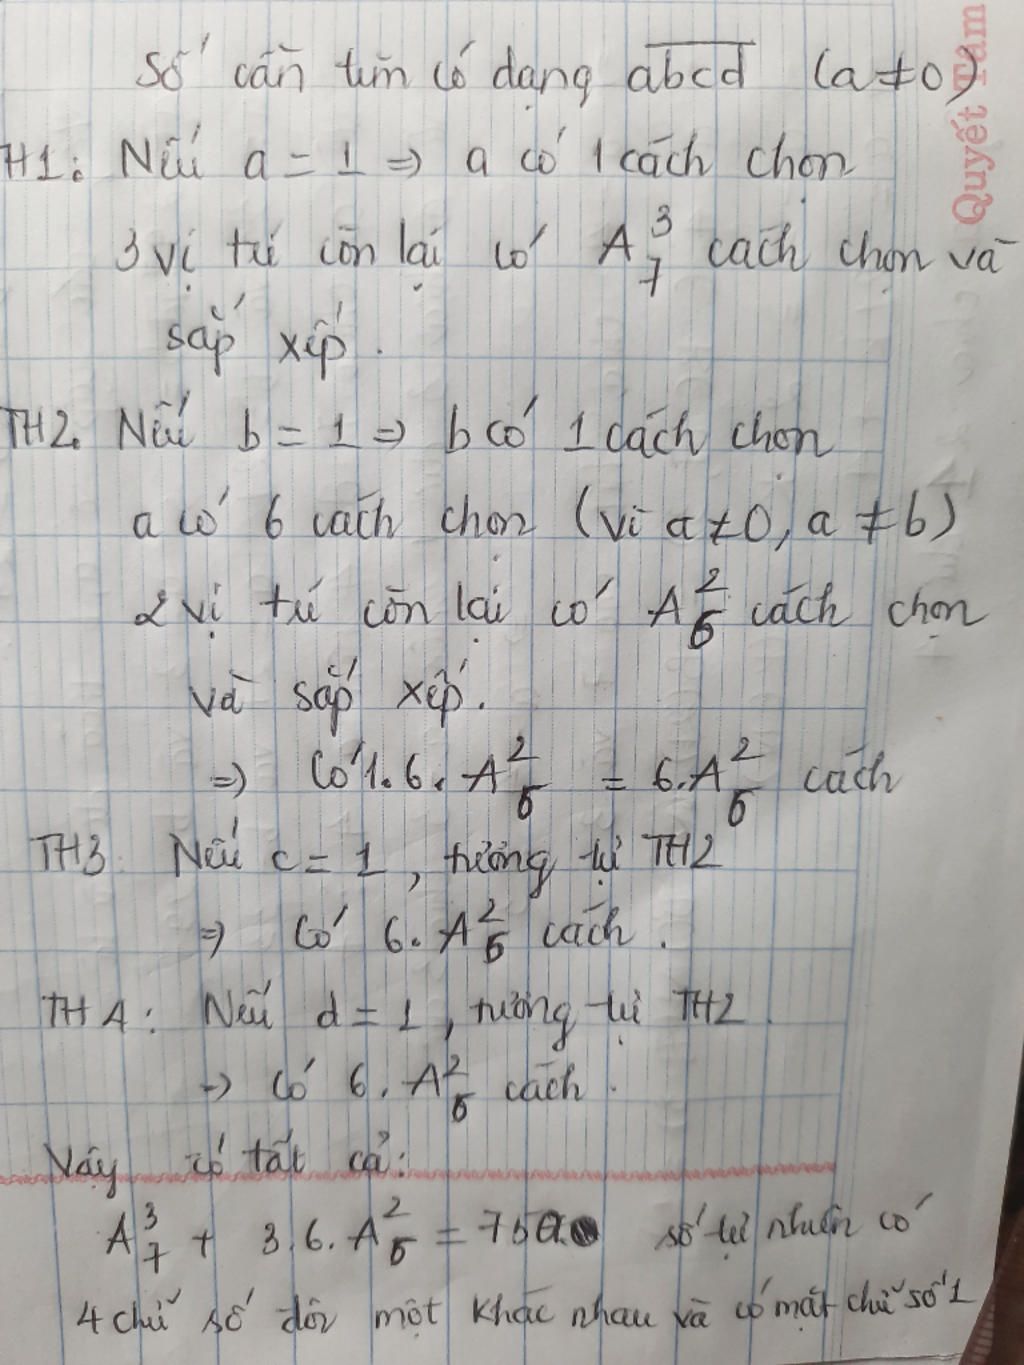 Số cần tìm có dạng abcd (a ≠ 0)
Quyết Tâm
TH1: Nếu a = 1 => a có 1 cách chọn
3 vị trí còn lại có A³₇ cách chọn và
sắp xếp.
TH2. Nếu b = 1 => b có 1 cách chọn
a có 6 cách chọn (vì a ≠ 0, a ≠ b)
2 vị trí còn lại có A²₆ cách chọn
và sắp xếp.
=> Có 1.6.A²₆ = 6.A²₆ cách
TH3 Nếu c = 1, tương tự TH2
=> Có 6.A²₆ cách.
TH4: Nếu d = 1, tương tự TH2.
-> Có 6.A²₆ cách.
Vậy có tất cả:
A³₇ + 3.6.A²₆ = 750 số tự nhiên có
4 chữ số đôi một khác nhau và có mặt chữ số 1